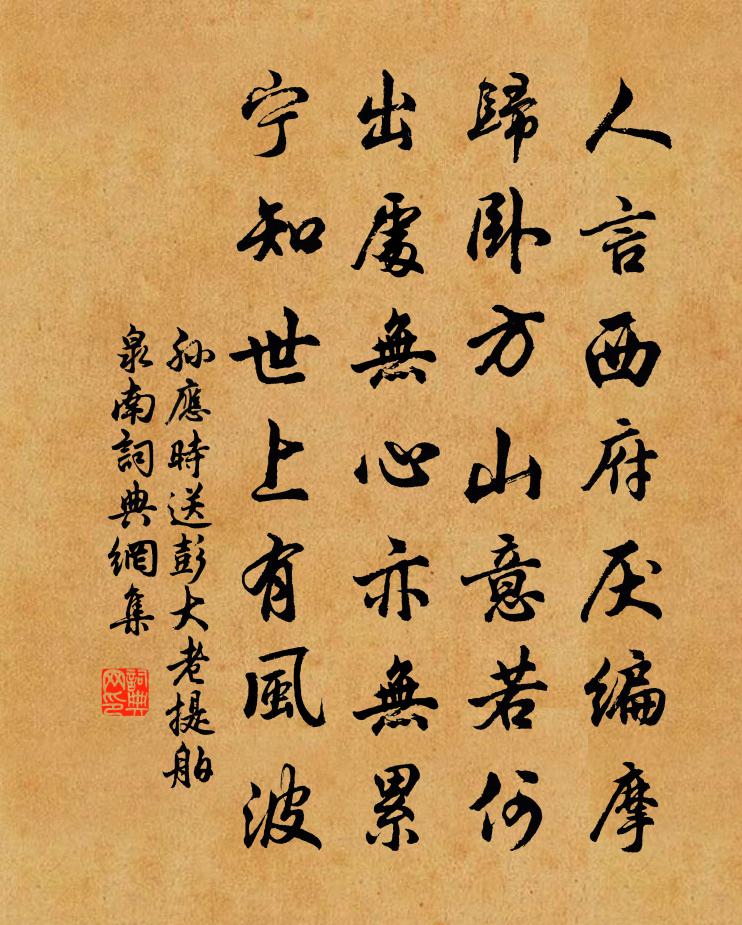 人言西府厌編摩
歸卧方山意若何
出處無心亦無累
宁知世上有風波
孫應時送彭大老提舶
泉南詞典網集
詞典
网印